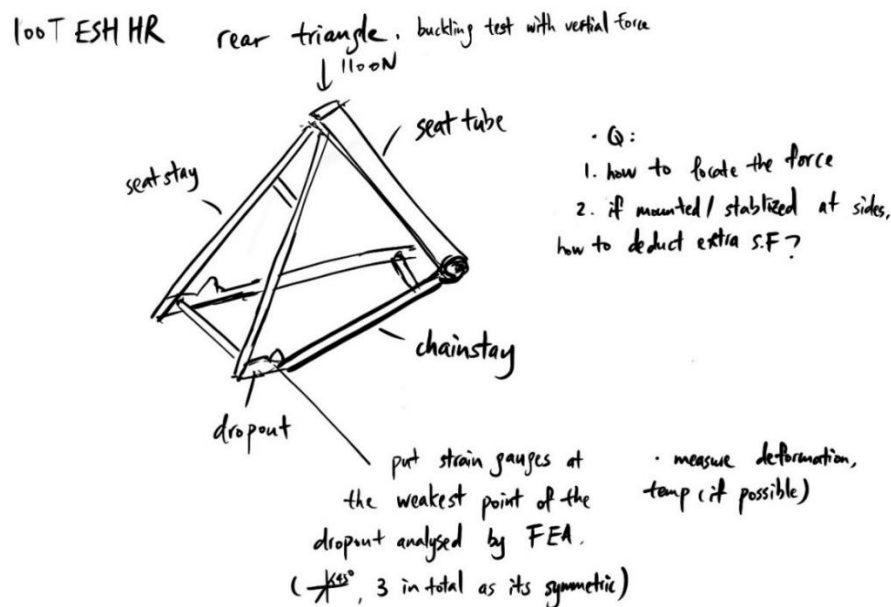 100T ESH HR rear triangle. buckling test with vertial force
↓ 1100N
seat tube
seat stay
· Q:
1. how to locate the force
2. if mounted / stablized at sides,
how to deduct extra S.F?
chainstay
dropout
put strain gauges at
the weakest point of the
dropout analysed by FEA.
( 45°, 3 in total as its symmetric)
· measure deformation,
temp (if possible)